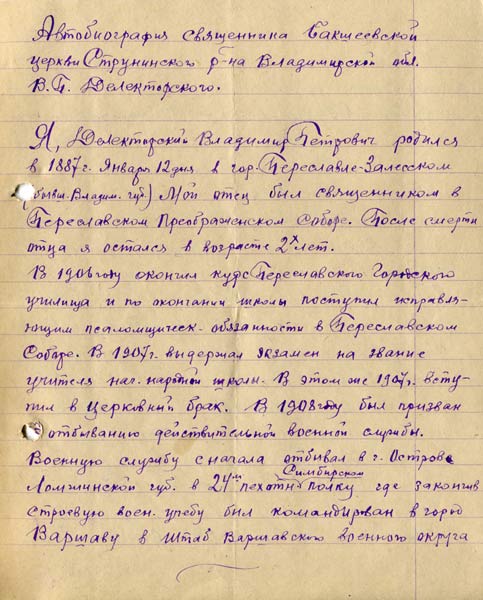 Автобиография священника Бакшеевской
церкви Струнинского р-на Владимирской обл.
В. П. Делекторского.
Я, Делекторский Владимир Петрович родился
в 1887 г. Января 12 дня в гор. Переславле-Залесском
(бывш. Владим. губ.) Мой отец был священником в
Переславском Преображенском Соборе. После смерти
отца я остался в возрасте 2х лет.
В 1906 году окончил курс Переславского Городского
училища и по окончании школы поступил исправля-
ющим псаломщическ. обязанности в Переславском
Соборе. В 1907 г. выдержал экзамен на звание
учителя нач. народной школы. В этом же 1907 г. всту-
пил в церковный брак. В 1908 году был призван
к отбыванию действительной военной службы.
Военную службу сначала отбывал в г. Острове
Ломжинской губ. в 24м пехотн. Симбирском полку где закончив
строевую воен. учебу был командирован в город
Варшаву в Штаб Варшавского военного округа